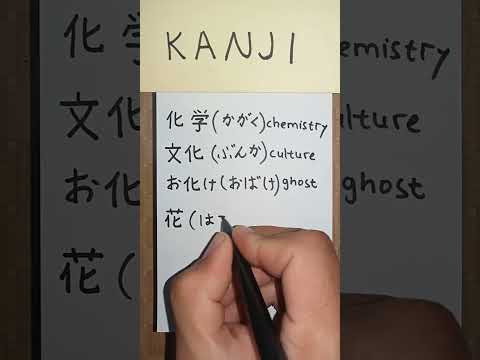 KANJI
化学(かがく)chemistry
文化(ぶんか)culture
お化け(おばけ)ghost
花(は